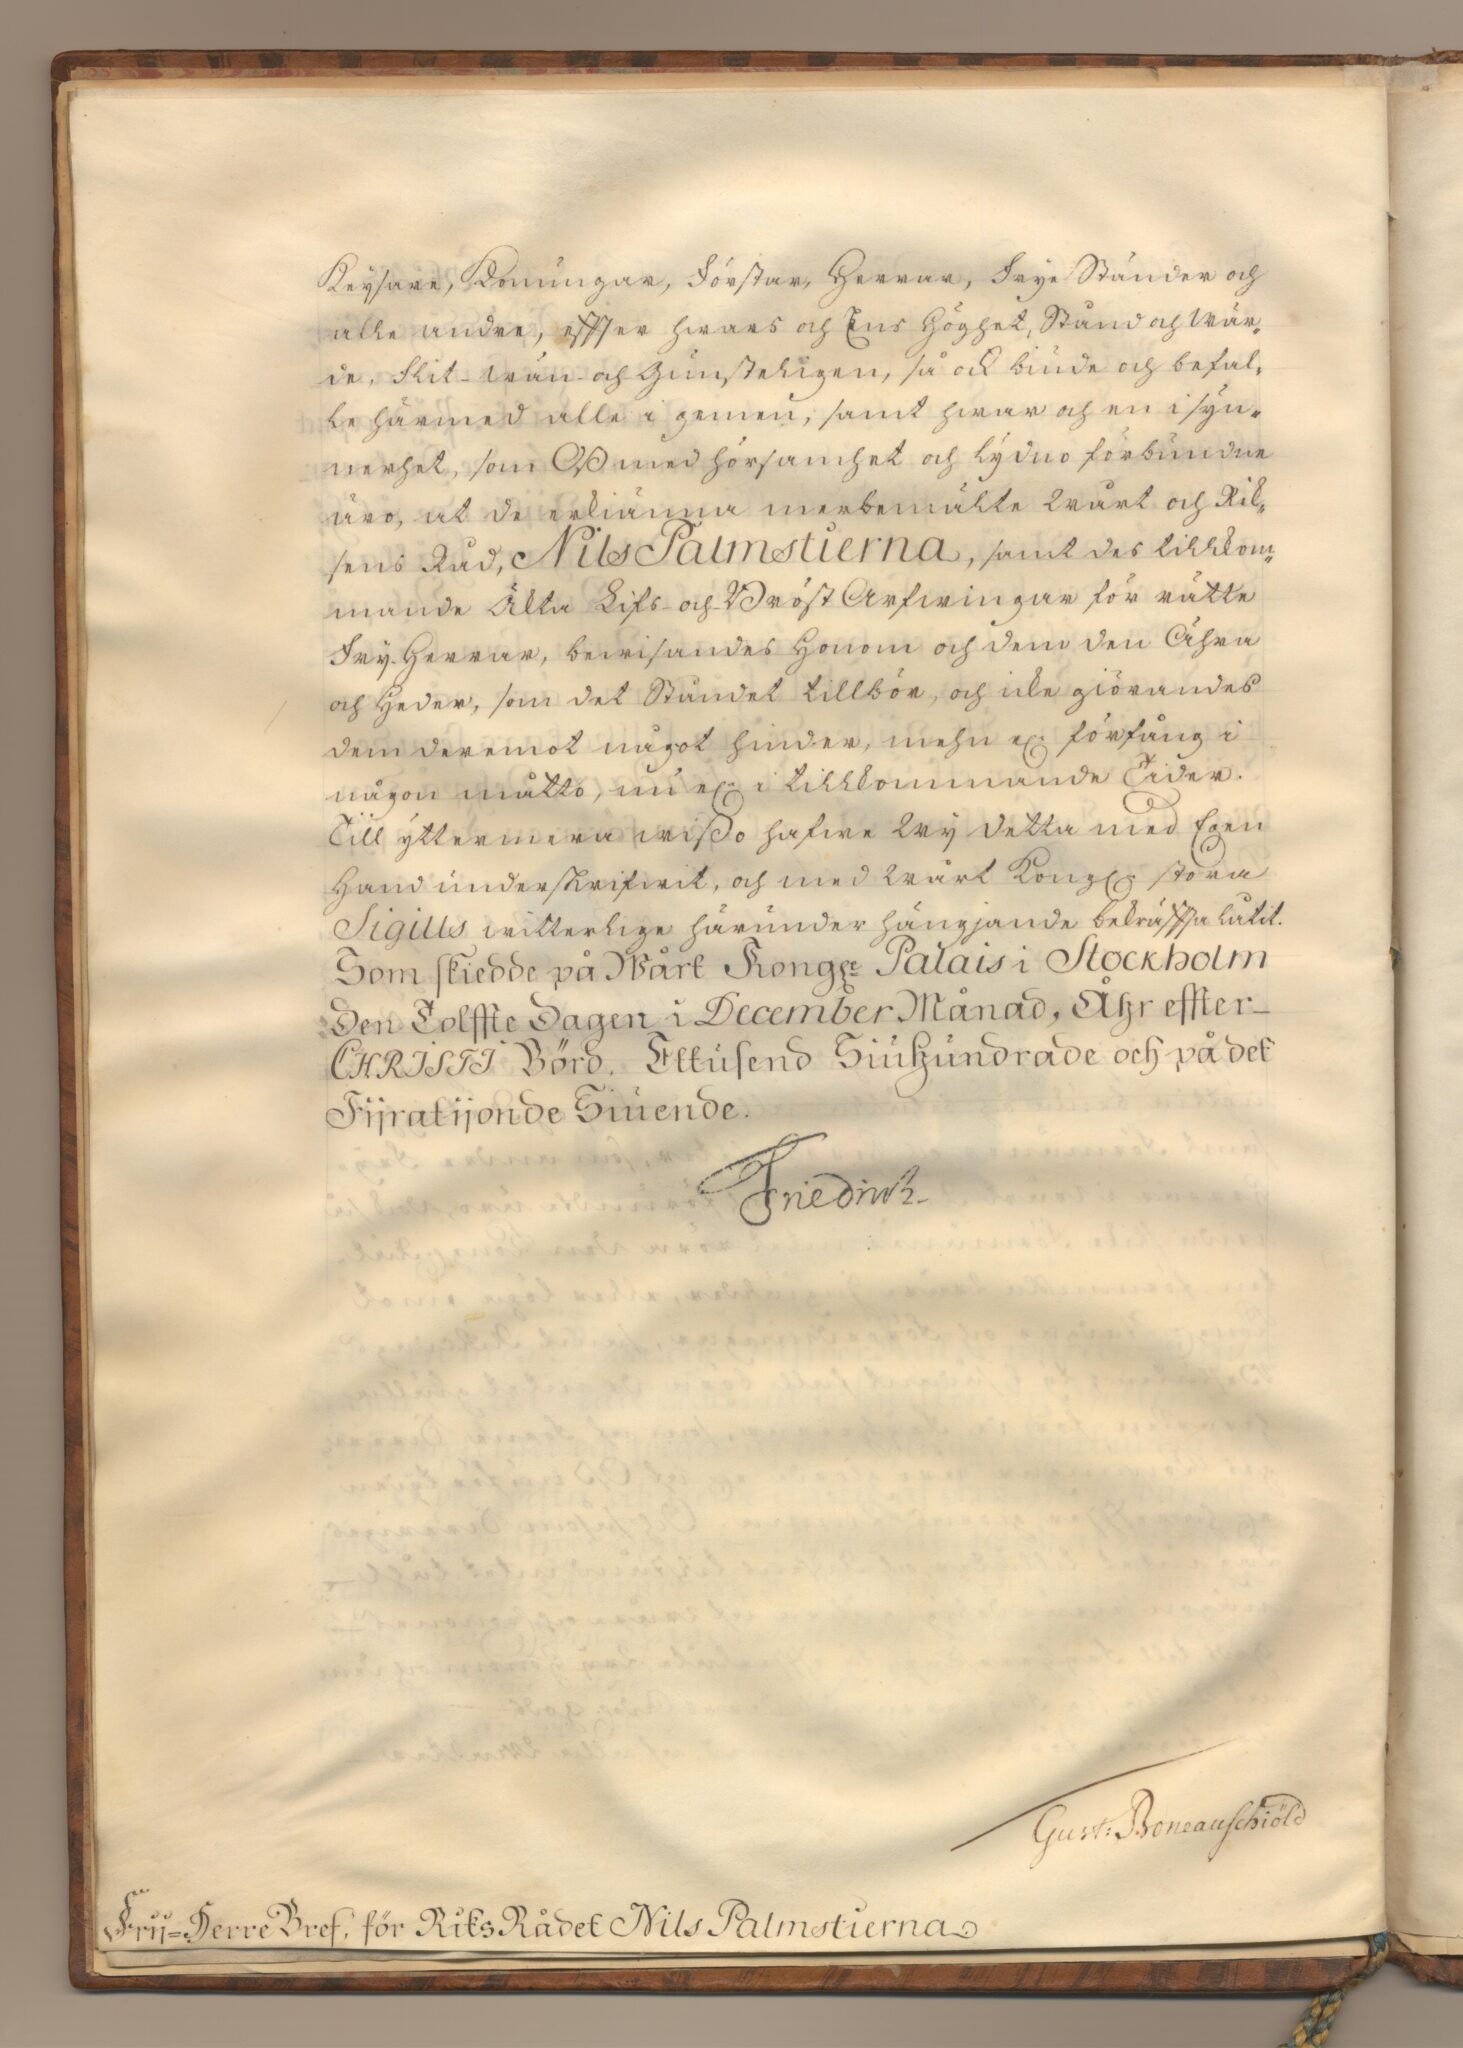 Keysare, Konungar, Förstar, Herrar, Frye Ständer och
alle andre, effter hvars och Ens Höghet, Stånd och Wär-
de, flit- wän- och Gunsteligen, så ock biude och befal-
le härmed alle i gemen, samt hwar och en i syn-
nerhet, som Oß med hörsamhet och lydno förbundne
äro, at de erkiänna merbemälte Wårt och Rik-
sens Råd, Nils Palmstierna, samt des tillkom-
mande Äkta Lifs- och Bröst Arfwingar för rätte
Fry-Herrar, bewisandes Honom och dem den Ähra
och Heder, som det Ståndet tillhör, och icke giörandes
dem deremot något hinder, mehn ell. förfång i
någon måtto, nu ell. i tillkommande Tider.
Till yttermera wißo hafwe Wy detta med Egen
Hand underskrifwit, och med Wårt Kongl. stora
Sigills witterlige härunder hängjande bekräffta låtit.
Som skiedde på Wårt Kongl. Palais i Stockholm
den Tolffte Dagen i December Månad, Åhr effter
CHRISTI Börd. Ettusend Siuhundrade och på det
Fijratijonde Siuende.
Friedrich
Gust: Boneauschiöld
Frij=Herre Bref, för RiksRådet Nils Palmstierna